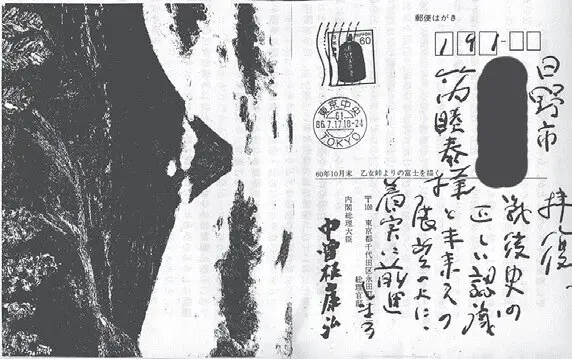 郵便はがき
191
NIPPON
60
東京中央
61
86.7.17 18-24
TOKYO
日野市
睦泰様
60年10月末 乙女峠よりの富士を描
拝復、
戦後史の
正しい認識
と未来への
展望のもとに、
着実に前進
しませう
〒100 東京都千代田区永田
総理官邸
内閣総理大臣
中曽根康弘